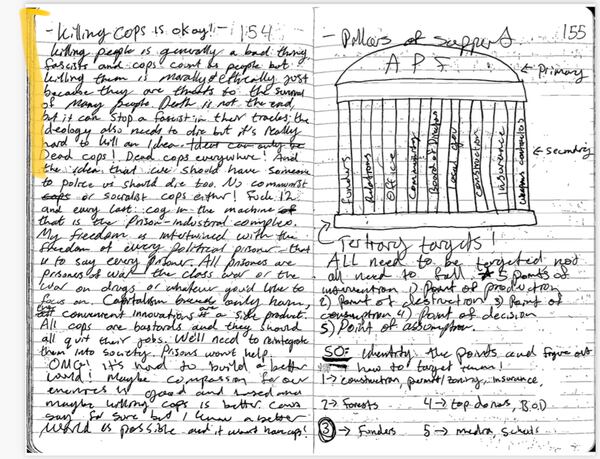 - Killing Cops is okay! - 154
Killing people is generally a bad thing,
fascists and cops count as people but
killing them is morally & ethically just
because they are threats to the survival
of many people. Death is not the end,
but it can stop a fascist in their tracks; the
ideology also needs to die but it's really
hard to kill an idea.
Dead cops! Dead cops everywhere! And
the idea that we should have someone
to police us should die too. No communist
cops or socialist cops either! Fuck 12
and every last cog in the machine of
that is the Prison-industrial complex.
My freedom is intertwined with the
freedom of every political prisoner that
is to say every prisoner. All prisoners are
prisoners of war the class war or the
war on drugs or whatever you'd like to
focus on. Capitalism breeds only harm,
convenient innovations is a side product.
All cops are bastards and they should
all quit their jobs. We'll need to reintegrate
them into society. Prisons won't help.
OMG! it's hard to build a better
world! maybe compassion for our
enemies is good and
maybe killing cops is better. Can't
say for sure but I know a better
world is possible and it won't have cops!
- Pillars of support 155
A P F
← Primary
Funders
Relations
Office
Community
Board of Directors
Local gov
Construction
Insurance
← secondary
Tertiary targets!
ALL need to be targeted not
all need to fall * 5 Points of
intervention 1) Point of production
2) Point of destruction 3) Point of
consumption 4) Point of decision
5) Point of assumption.
SO: Identify the points and figure out
how to target them!
1→ construction, permit/zoning, insurance,
2→ Forests 4→ top donors, B.O.D
3→ Funders 5→ media, schools